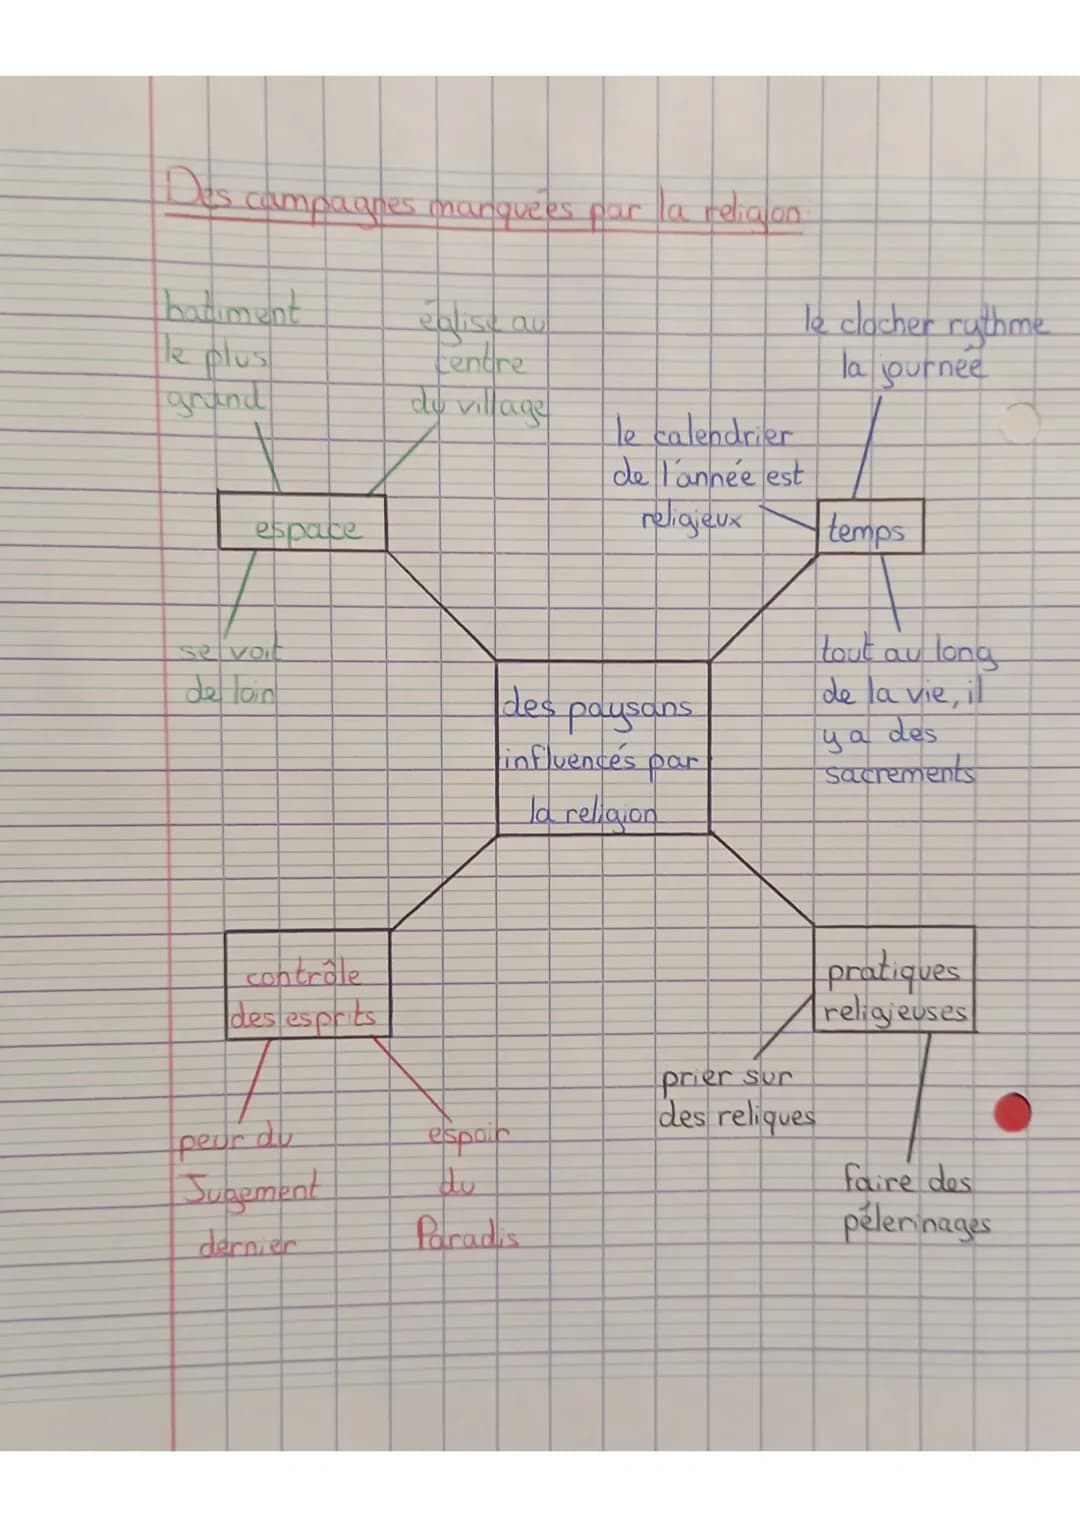 Des campagnes marquées par la religion
batiment
le plus
grand
église au
centre
du village
le clocher rythme
la journée
le calendrier
de l'année est
religieux
espace
temps
se voit
de loin
tout au long
de la vie, il
y a des
sacrements
des paysans
influencés par
la religion
contrôle
des esprits
pratiques
religieuses
peur du
Jugement
dernier
espoir
du
Paradis
prier sur
des reliques
faire des
pélerinages